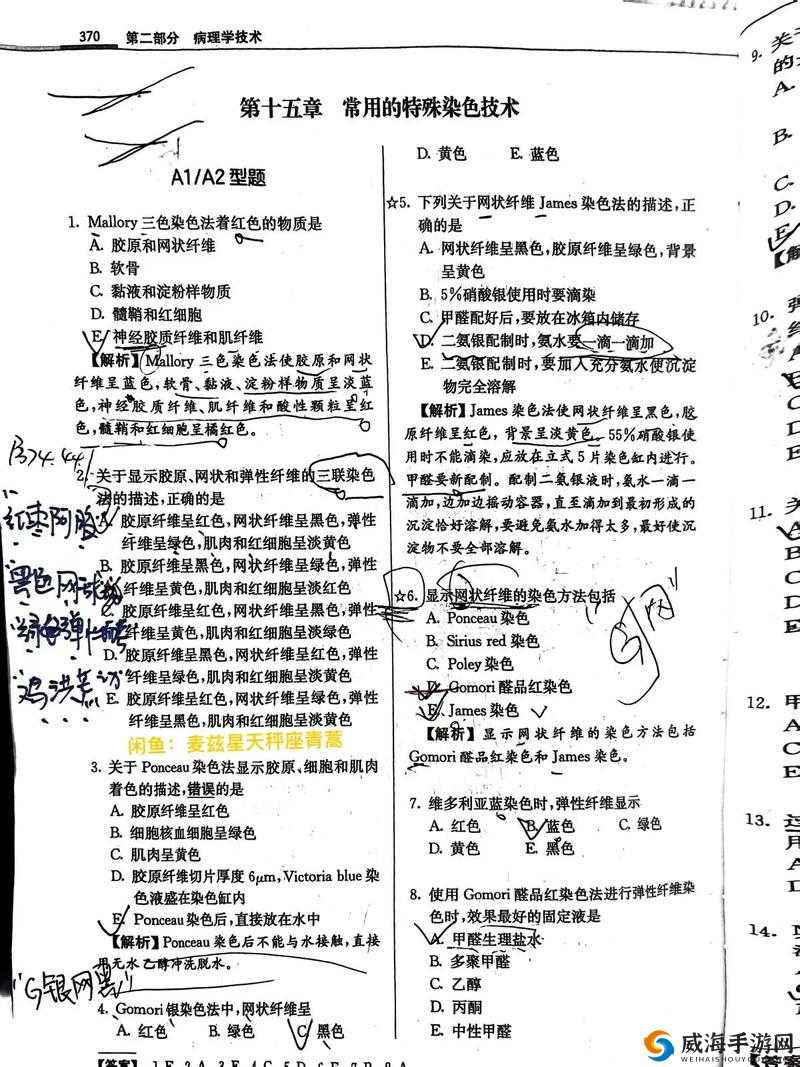 370 第二部分 病理学技术
第十五章 常用的特殊染色技术
A1/A2型题
1. Mallory三色染色法着红色的物质是
A. 胶原和网状纤维
B. 软骨
C. 黏液和淀粉样物质
D. 髓鞘和红细胞
E. 神经胶质纤维和肌纤维
【解析】Mallory三色染色法使胶原和网状
纤维呈蓝色，软骨、黏液、淀粉样物质呈淡蓝
色，神经胶质纤维、肌纤维和酸性颗粒呈红
色，髓鞘和红细胞呈橘红色。
2. 关于显示胶原、网状和弹性纤维的三联染色
法的描述，正确的是
A. 胶原纤维呈红色，网状纤维呈黑色，弹性
纤维呈绿色，肌肉和红细胞呈淡黄色
B. 胶原纤维呈黑色，网状纤维呈绿色，弹性
纤维呈黄色，肌肉和红细胞呈淡红色
C. 胶原纤维呈红色，网状纤维呈黑色，弹性
纤维呈黄色，肌肉和红细胞呈淡绿色
D. 胶原纤维呈黑色，网状纤维呈红色，弹性
纤维呈绿色，肌肉和红细胞呈淡黄色
E. 胶原纤维呈红色，网状纤维呈绿色，弹性
纤维呈黑色，肌肉和红细胞呈淡黄色
闲鱼：麦兹星天秤座青蒿
3. 关于Ponceau染色法显示胶原、细胞和肌肉
着色的描述，错误的是
A. 胶原纤维呈红色
B. 细胞核血细胞呈绿色
C. 肌肉呈黄色
D. 胶原纤维切片厚度6μm，Victoria blue染
色液盛在染色缸内
E. Ponceau染色后，直接放在水中
【解析】Ponceau染色后不能与水接触，直接
用无水乙醇冲洗脱水。
"G银网黑"
4. Gomori银染色法中，网状纤维呈
A. 红色 B. 绿色 C. 黑色
【答案】 1.E 2.A 3.E 4.C 5.D 6.E 7.B 8.A
P374.44.1
红枣阿胶
黑色网球
绿色弹
鸡淇
D. 黄色 E. 蓝色
☆5. 下列关于网状纤维James染色法的描述，正
确的是
A. 网状纤维呈黑色，胶原纤维呈绿色，背景
呈黄色
B. 5%硝酸银使用时要滴染
C. 甲醛配好后，要放在冰箱内储存
D. 二氨银配制时，氨水要一滴一滴加
E. 二氨银配制时，要加入充分氨水使沉淀
物完全溶解
【解析】James染色法使网状纤维呈黑色，胶
原纤维呈红色，背景呈淡黄色。55%硝酸银使
用时不能滴染，应放在立式5片染色缸内进行。
甲醛要新配制。配制二氨银液时，氨水一滴一
滴加，边加边摇动容器，直至滴加到最初形成的
沉淀恰好溶解，要避免氨水加得太多，最好使沉
淀物不要全部溶解。
☆6. 显示网状纤维的染色方法包括
A. Ponceau染色
B. Sirius red染色
C. Poley染色
D. Gomori醛品红染色
E. James染色
"G网"
【解析】显示网状纤维的染色方法包括
Gomori醛品红染色和James染色。
7. 维多利亚蓝染色时，弹性纤维显示
A. 红色 B. 蓝色 C. 绿色
D. 黄色 E. 黑色
8. 使用Gomori醛品红染色法进行弹性纤维染
色时，效果最好的固定液是
A. 甲醛生理盐水
B. 多聚甲醛
C. 乙醇
D. 丙酮
E. 中性甲醛
9. 关
的
A.
B.
C.
D.
E
【解
10. 弹
C
D
E
11. 关
A
B
C
D
E
12. 甲
A
C
E
13.
用
A
D
14.
【答案
威海手游网
WEIHAISHOUYOUWANG